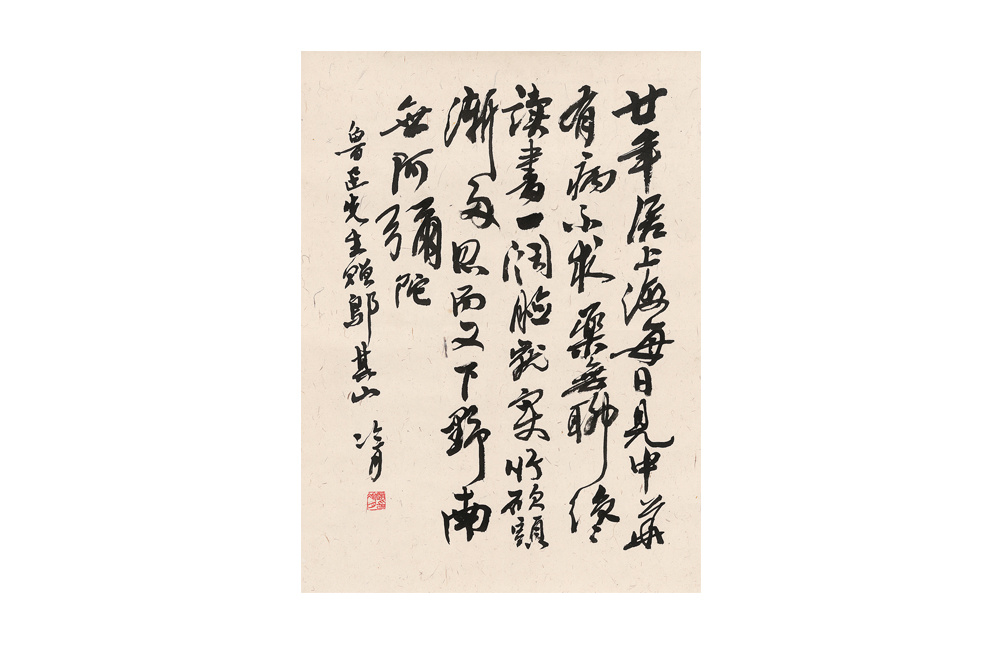 廿年居上海每日見中華
有病不求藥無聊纔
读書一阔脸就变所砍頭
漸多忽而又下野南
無阿彌陀
魯迅先生贈鄔其山
冷月